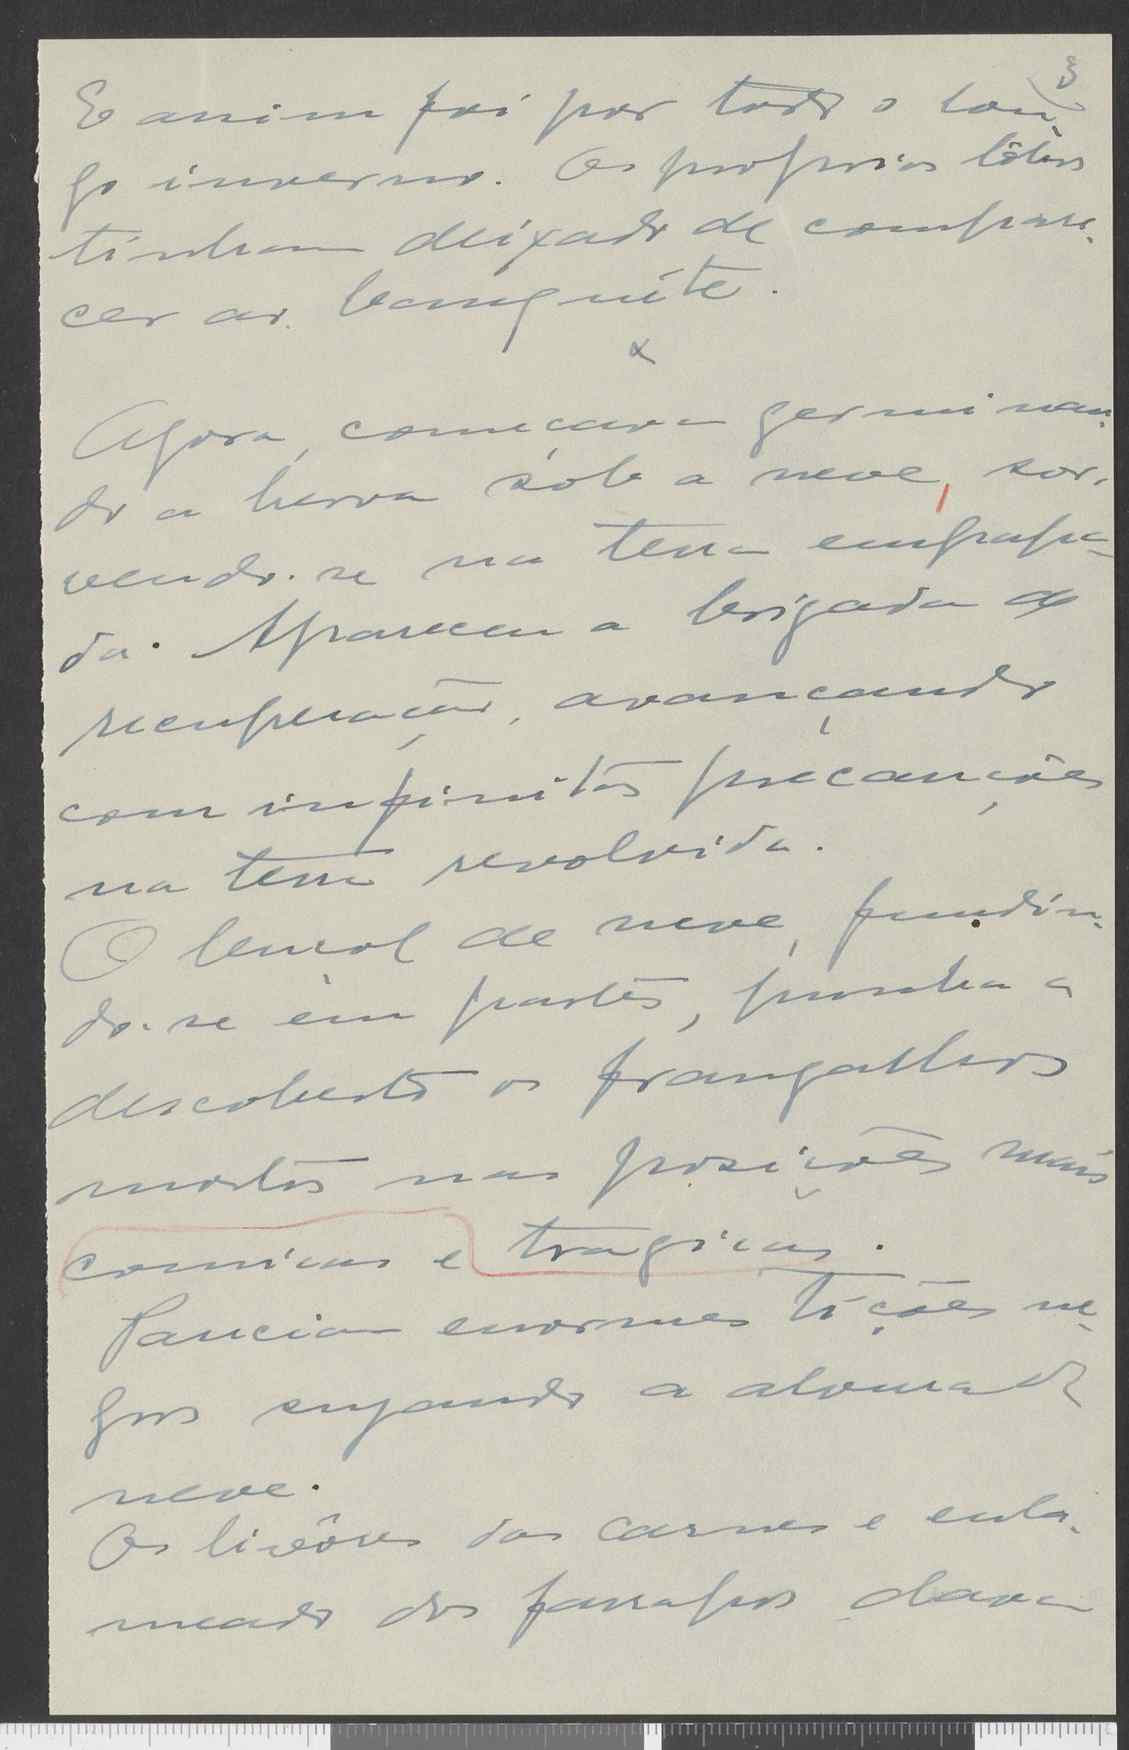 3
E assim foi por todo o lon-
go inverno. Os proprios lôbos
tinham deixado de compare-
cer ao banquête.
x
Agora, começava germinan-
do a herva sób a neve, sor-
vendo-se na terra empapa-
da. Apareceu a brigada de
recuperação, avançando
com infinitas precauções
na terra revolvida.
O lençol de neve, fundin-
do-se em partes, punha a
descoberto os frangalhos
mortos nas posições mais
comicas e tragicas.
Pareciam enormes tições ne-
gros sujando a alvura da
neve.
Os livôres das carnes e enla-
meado dos farrapos dava